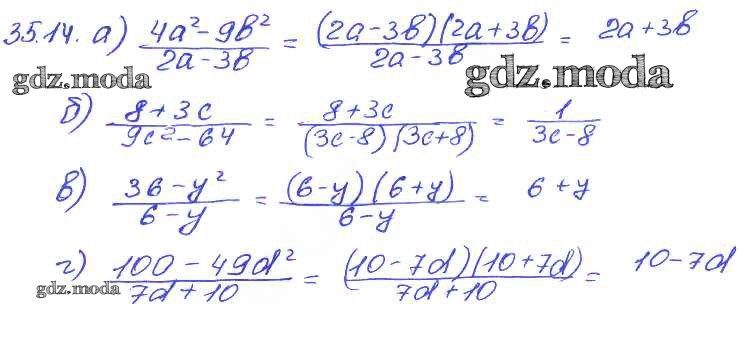 35.14. а) (4a² - 9b²)/(2a - 3b) = ((2a - 3b)(2a + 3b))/(2a - 3b) = 2a + 3b
gdz.moda gdz.moda
б) (8 + 3c)/(9c² - 64) = (8 + 3c)/((3c - 8)(3c + 8)) = 1/(3c - 8)
в) (36 - y²)/(6 - y) = ((6 - y)(6 + y))/(6 - y) = 6 + y
г) (100 - 49d²)/(7d + 10) = ((10 - 7d)(10 + 7d))/(7d + 10) = 10 - 7d
gdz.moda